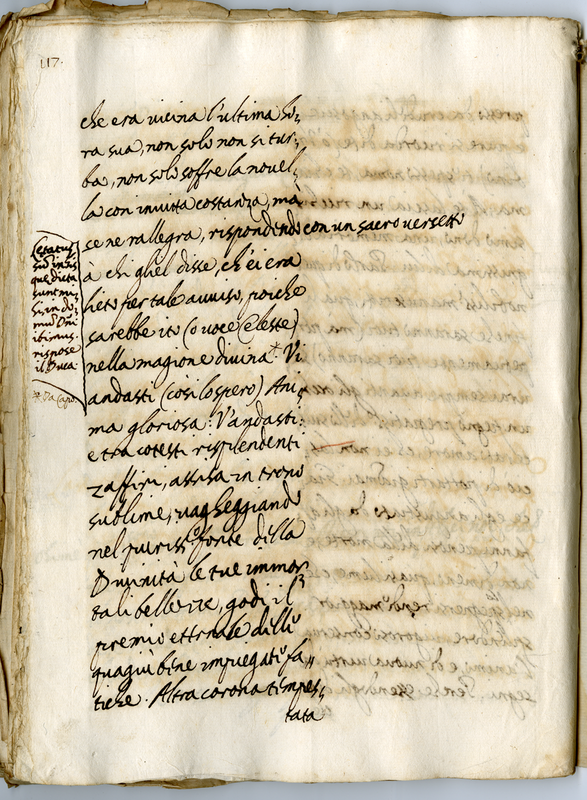 117.
che era vicina l'ultima ho,
ra sua, non solo non si tur,
ba, non solo soffre la novel,
la con invitta costanza, mà
se ne rallegra, rispondendo con un sacro versetto
à chi gliel disse, ch'ei era
lieto per tale avviso, poiche
sarebbe ito (o voce Celeste)
nella magione divina.* Vi
andasti (così lo spero) Ani,
ma gloriosa. V'andasti:
e tra cotesti risplendenti
zaffiri, assisa in trono
sublime, vagheggiando
nel puriss.o fonte della
Divinità le tue immor
tali bellezze, godi il
premio etternale delle
quagiù bene impiegate fa,,
tiche. Altra corona tempes,
tata
Lętatus
sũ in his
que dicta
sunt mi,
si, in do,
mũ Dñi
ibimus.
rispose
il Duca
*. Da Capo.